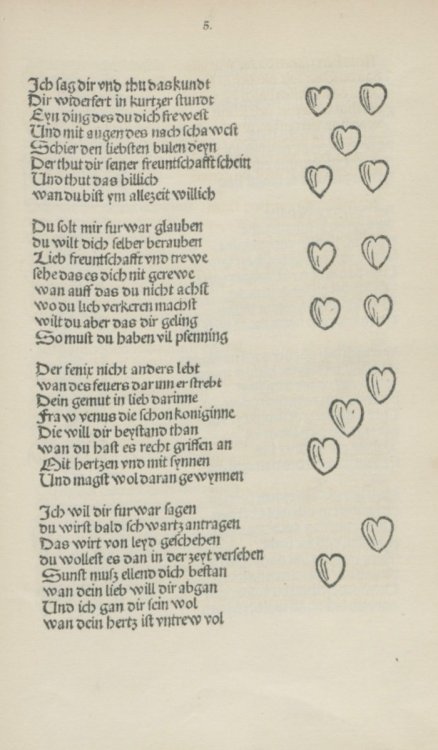 5.
Ich sag dir vnd thu das kundt
Dir widerfert in kurtzer stundt
Eyn ding des du dich frewest
Und mit augen des nach schawest
Schier den liebsten bulen deyn
Der thut dir seiner freuntschafft schein
Und thut das billich
wan du bist ym allezeit willich
Du solt mir fur war glauben
du wilt dich selber berauben
Lieb freuntschafft vnd trewe
sehe das es dich nit gerewe
wan auff das du nicht achst
wo du lieb verkeren machst
wilt du aber das dir geling
So must du haben vil pfenning
Der fenix nicht anders lebt
wan des feuers darumm er strebt
Dein gemut in lieb darinne
Fraw venus die schon koniginne
Die will dir beystand than
wan du hast es recht griffen an
Mit hertzen vnd mit synnen
Und magst wol daran gewynnen
Ich wil dir fur war sagen
du wirst bald schwartz antragen
Das wirt von leyd geschehen
du wollest es dan in der zeyt versehen
Sunst musz ellend dich bestan
wan dein lieb will dir abgan
Und ich gan dir sein wol
wan dein hertz ist vntrew vol